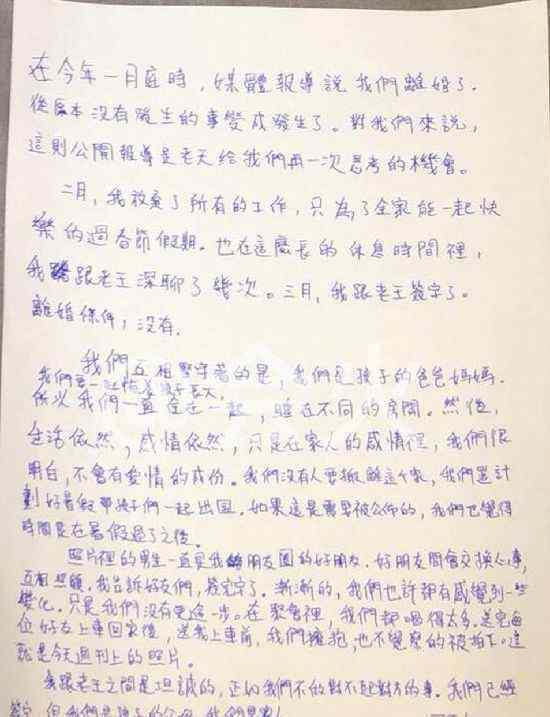 在今年一月底時，媒體報導說我們離婚了.
從原本沒有發生的事變成發生了。對我們來說，
這則公開報導是老天給我們再一次思考的機會。
二月，我放棄了所有的工作，只為了全家能一起快
樂的過春節假期。也在這麼長的休息時間裡，
我跟老王深聊了幾次。三月，我跟老王簽字了。
離婚條件，沒有.
我們互相堅守著的是，我們是孩子的爸爸媽媽.
我們要一起陪著孩子長大,
所以我們一直住在一起，睡在不同的房間。然後,
生活依然，感情依然，只是在家人的感情裡，我們很
明白，不會有愛情的成份。我們沒有人要搬離這個家，我們還計
劃好暑假帶孩子們一起出國，如果這是需要被公佈的，我們也覺得
時間是在暑假過了之後。
照片裡的男生一直是我朋友圈的好朋友. 好朋友間會交換心事,
互相照顧，我告訴好友們，簽完字了。漸漸的，我們也許都有感覺到一些
變化. 只是我們沒有更進一步。在聚會裡，我們都喝得太多. 送完每
位好友上車回家後，送我上車前，我們擁抱，也不覺察的被拍下。這
就是今天週刊上的照片。
我跟老王之間是坦誠的，正如我們不做對不起對方的事。我們已經
簽字，但我們是孩子的父母，我們是家人